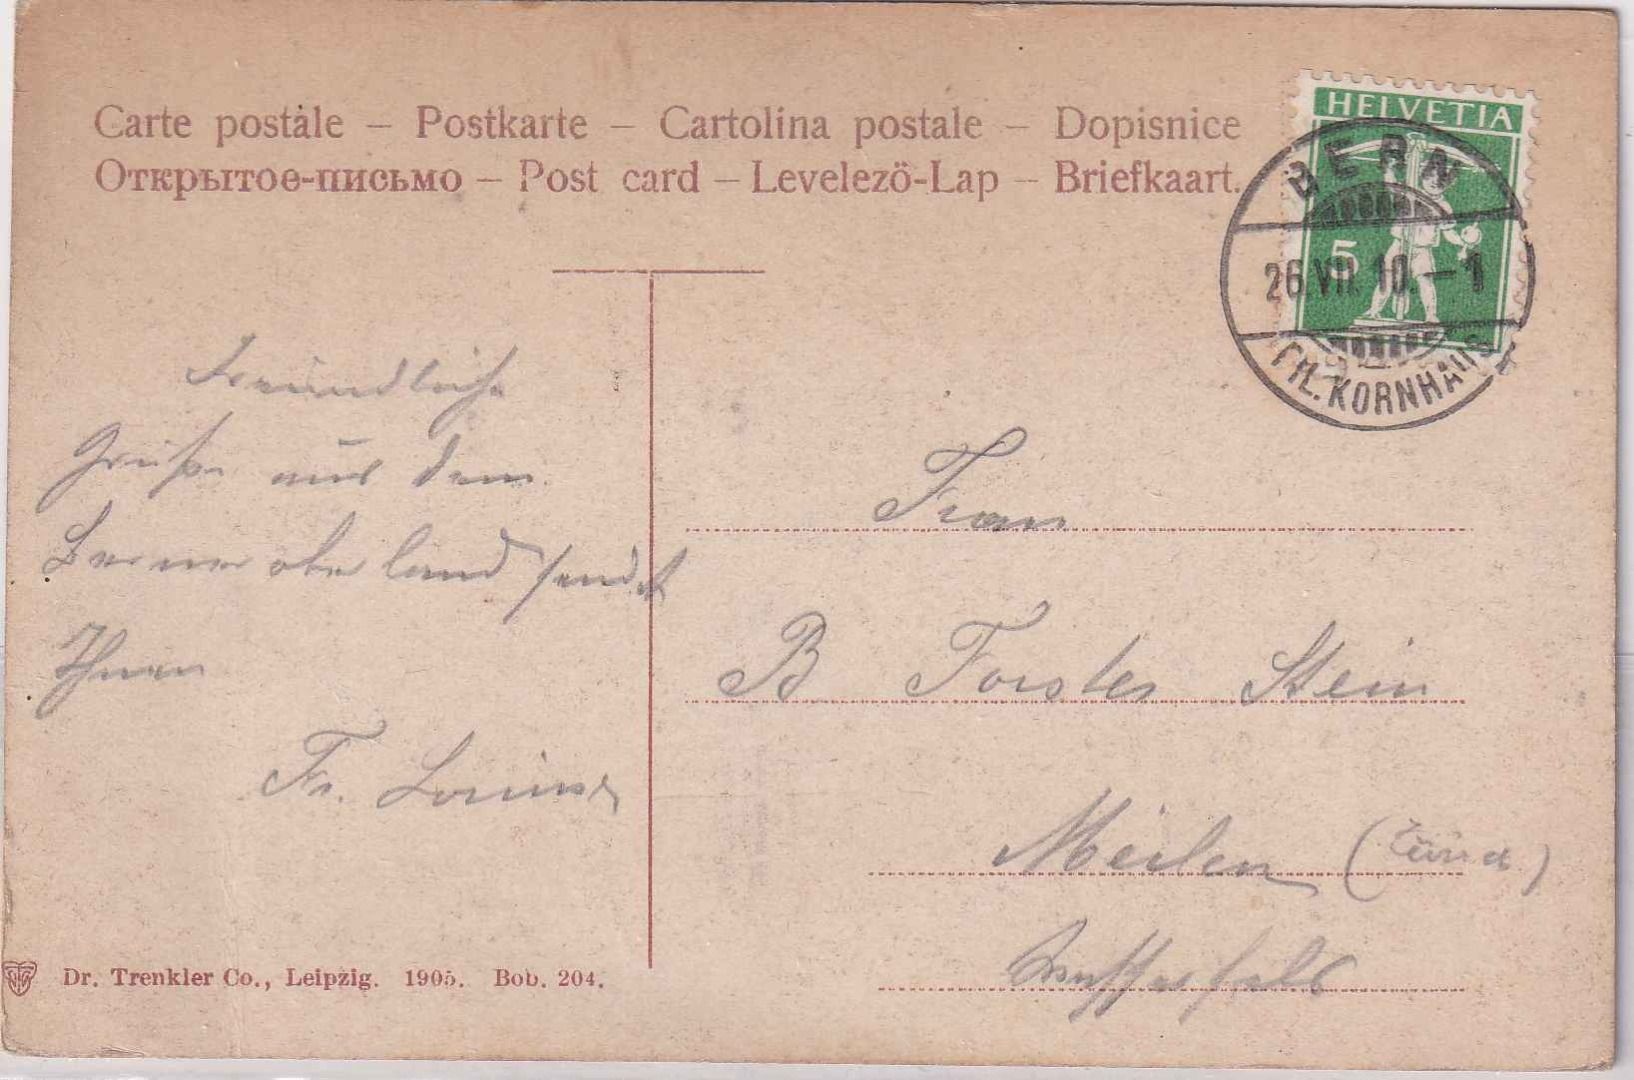 Carte postale – Postkarte – Cartolina postale – Dopisnice
Открытое-письмо – Post card – Levelezö-Lap – Briefkaart.
HELVETIA
5
BERN
26.VII.10.–1
FIL. KORNHAUS
Freundliche
Grüße aus dem
Berneroberland sendet
Ihnen
Fr.
Frau
B Forster Stein
Meilen (Zürich)
Dr. Trenkler Co., Leipzig. 1905. Bob. 204.